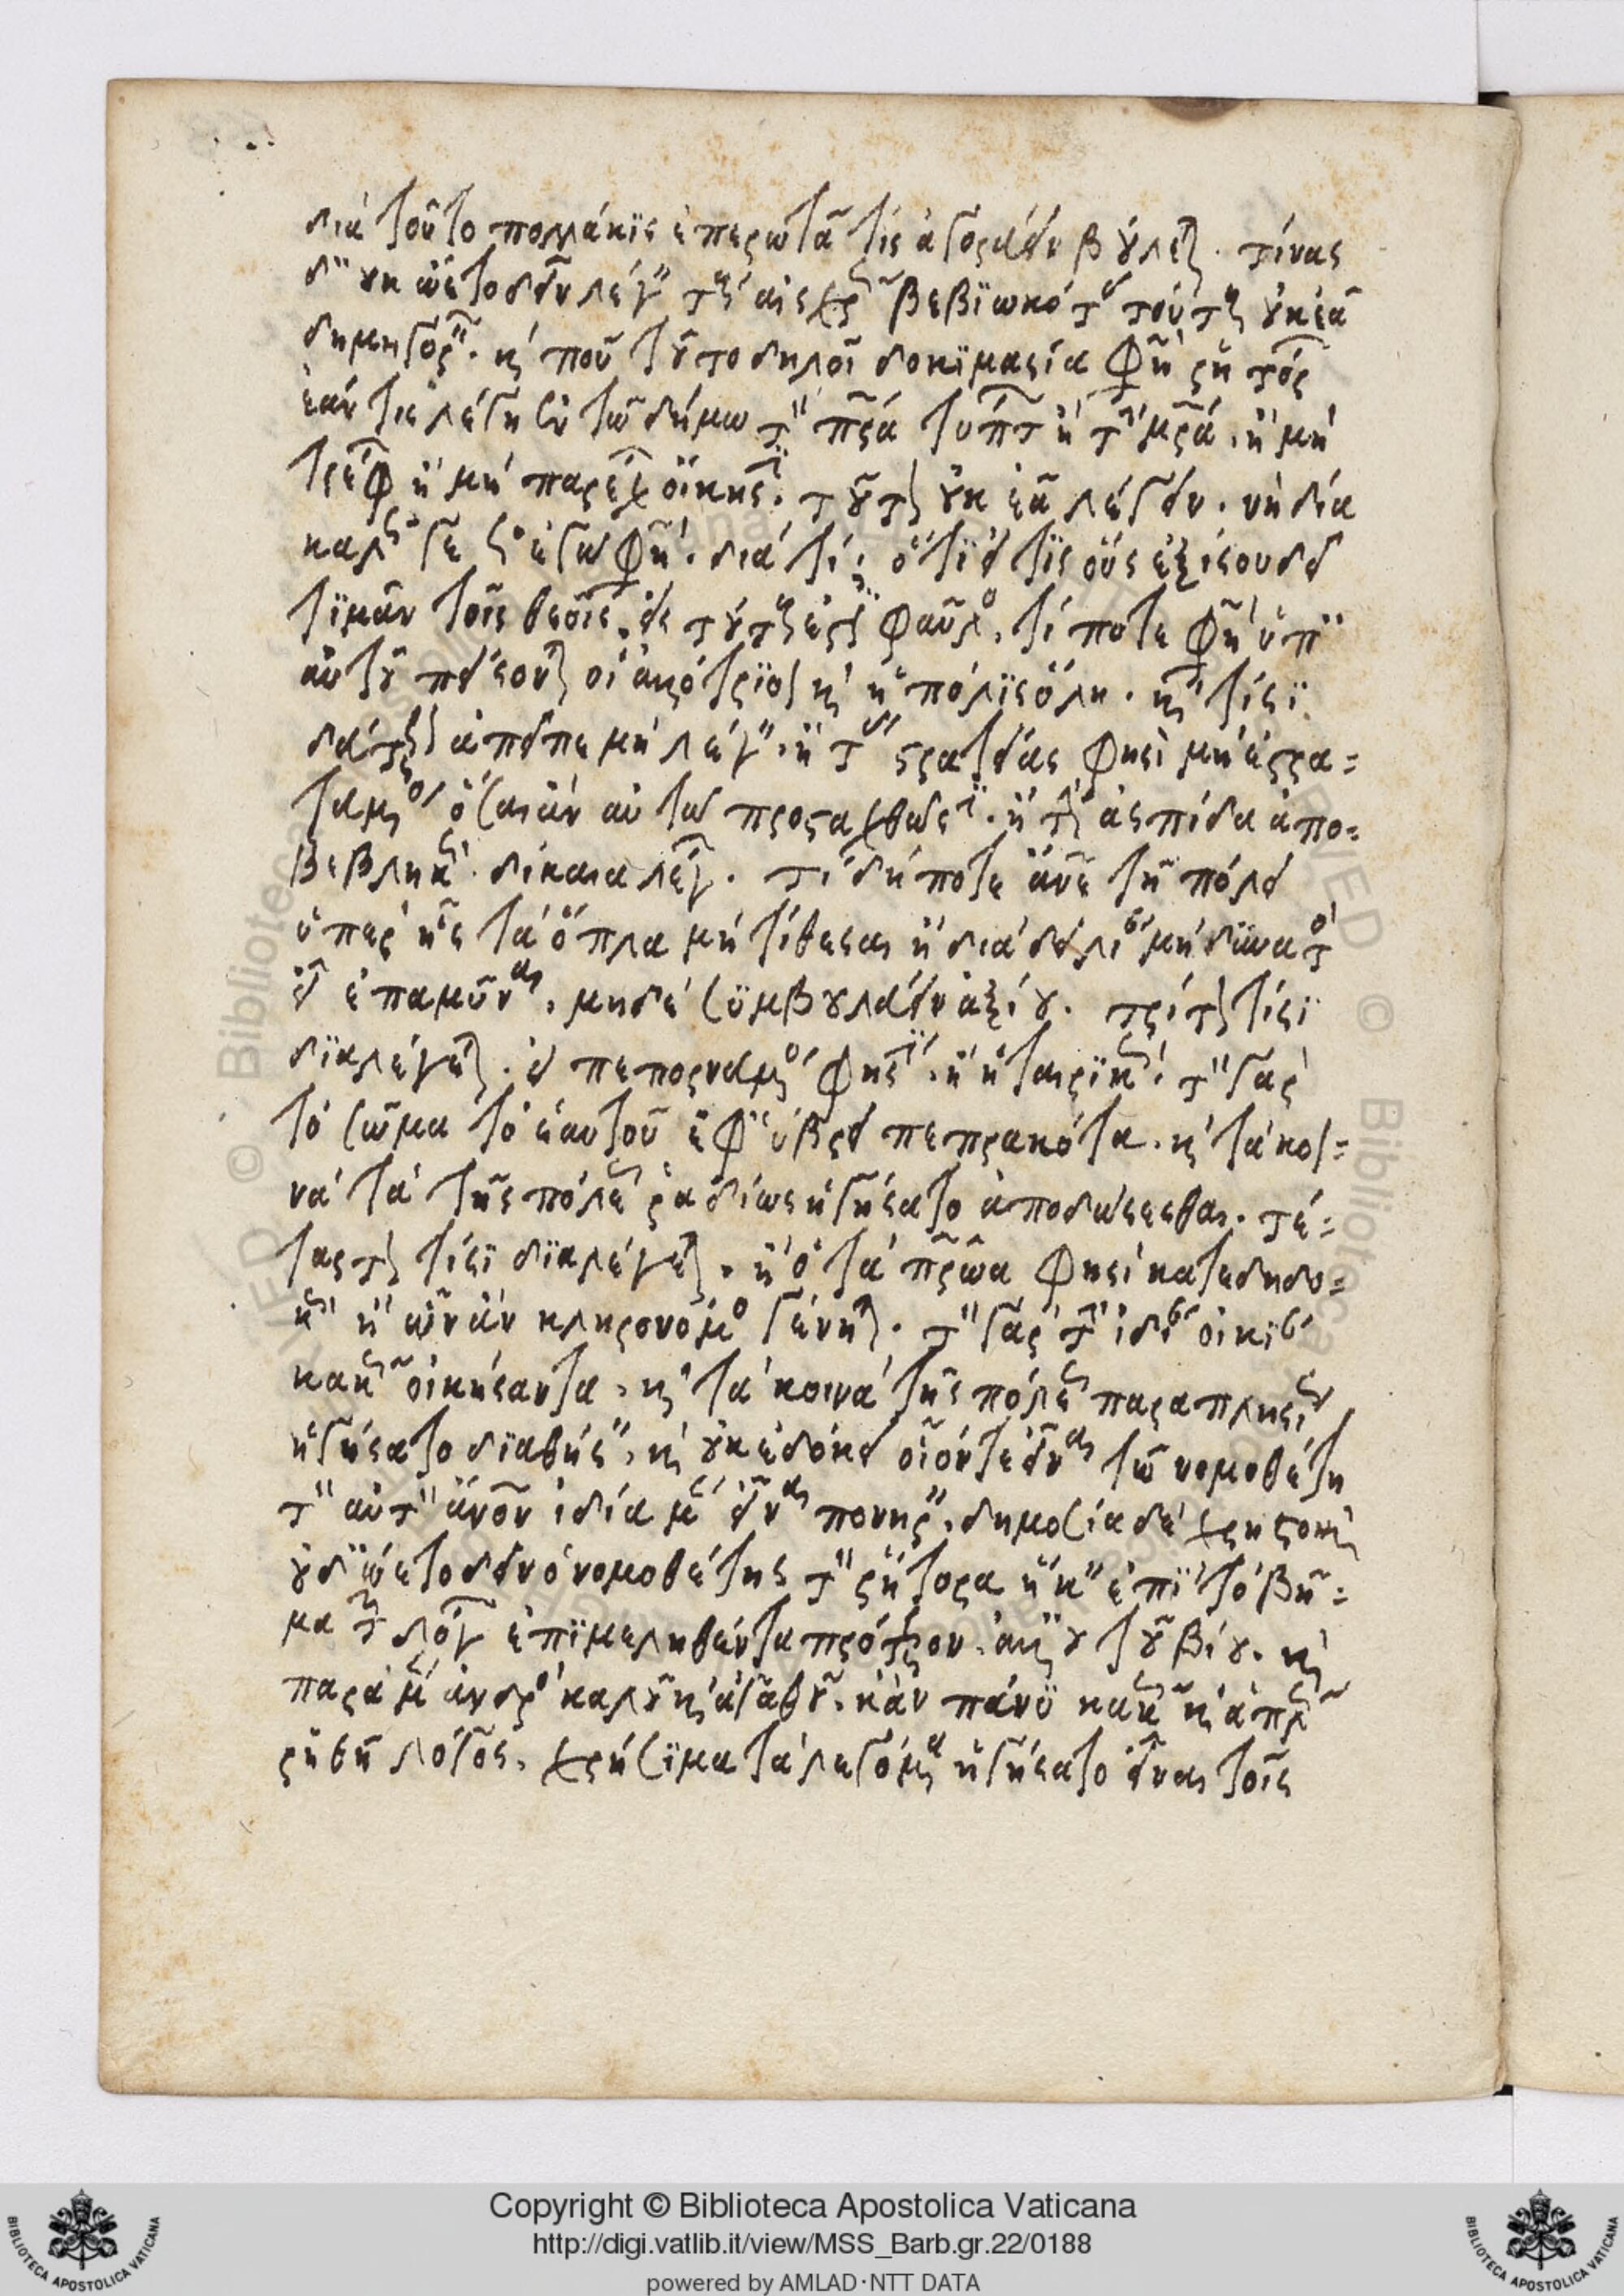 διὰ τοῦτο πολλάκις ἐπερωτᾶ τίς ἀγορεύειν βούλεται. τίνας
δ' οὐκ ὤετο δεῖν λέγειν τοὺς αἰσχρῶς βεβιωκότας τούτους οὐκ ἐᾶ
δημηγορεῖν. καὶ ποῦ τοῦτο δηλοῖ δοκιμασία φησὶ ῥητόρων
ἐάν τις λέγη ἐν τῶ δήμω τὸν πατέρα τύπτων ἢ τὴν μητέρα. ἢ μὴ
τρέφων ἢ μὴ παρέχων οἴκησιν. τοῦτον οὐκ ἐᾶ λέγειν. νὴ δία
καλῶς γε ὡς ἔγωγε φημί. διὰ τί; ὅτι εἴ τις οὓς ἐξίσου δεῖ
τιμᾶν τοῖς θεοῖς, εἰς τούτους ἐστὶ φαῦλος, τί ποτε φησὶν ὑπ'
αὐτοῦ πείσονται οἱ ἀλλότριοι καὶ ἡ πόλις ὅλη. καὶ τίσι
δεύτερον ἀπεῖπε μὴ λέγειν. ἢ τὰς στρατείας φησὶ μὴ ἐστρα=
τευμένος ὅσαι ἂν αὐτῶ προσταχθῶσιν. ἢ τὴν ἀσπίδα ἀπο=
βεβληκώς. δίκαια λέγων. τί δήποτε ἄνθρωπε τῆ πόλει
ὑπὲρ ἧς τὰ ὅπλα μὴ τίθεσαι ἢ διὰ δειλίαν μὴ δυνατὸς
εἶ ἐπαμῦναι, μηδὲ συμβουλεύειν ἀξίου. τρίτον τίσι
διαλέγεται. ἢ πεπορνευμένος φησίν. ἢ ἡταιρηκώς. τὸν γὰρ
τὸ σῶμα τὸ ἑαυτοῦ ἐφ' ὕβρει πεπρακότα. καὶ τὰ κοι=
νὰ τὰ τῆς πόλεως ῥαδίως ἡγήσατο ἀποδώσεσθαι. τέ=
ταρτον τίσι διαλέγεται. ἢ ὁ τὰ πατρῶα φησὶ κατεδηδο=
κὼς ἢ ὧν ἂν κληρονόμος γένηται. τὸν γὰρ τὴν ἰδίαν οἰκίαν
κακῶς οἰκήσαντα, καὶ τὰ κοινὰ τῆς πόλεως παραπλησίως
ἡγήσατο διαθήσειν, καὶ οὐκ ἐδόκει οἷόν τε εἶναι τῶ νομοθέτη
τὸν αὐτὸν ἄνθρωπον ἰδία μὲν εἶναι πονηρὸν, δημοσία δὲ χρηστόν.
οὐδ' ὤετο δεῖν ὁ νομοθέτης τὸν ῥήτορα ἥκειν ἐπὶ τὸ βῆ=
μα τῶν λόγων ἐπιμεληθέντα πρότερον. ἀλλ' οὐ τοῦ βίου. καὶ
παρὰ μὲν ἀνδρὸς καλοῦ καὶ ἀγαθοῦ. κἂν πάνυ κακῶς καὶ ἁπλῶς
ῥηθῆ λόγος. χρήσιμα τὰ λεγόμενα ἡγήσατο εἶναι τοῖς
Copyright © Biblioteca Apostolica Vaticana
http://digi.vatlib.it/view/MSS_Barb.gr.22/0188
powered by AMLAD·NTT DATA